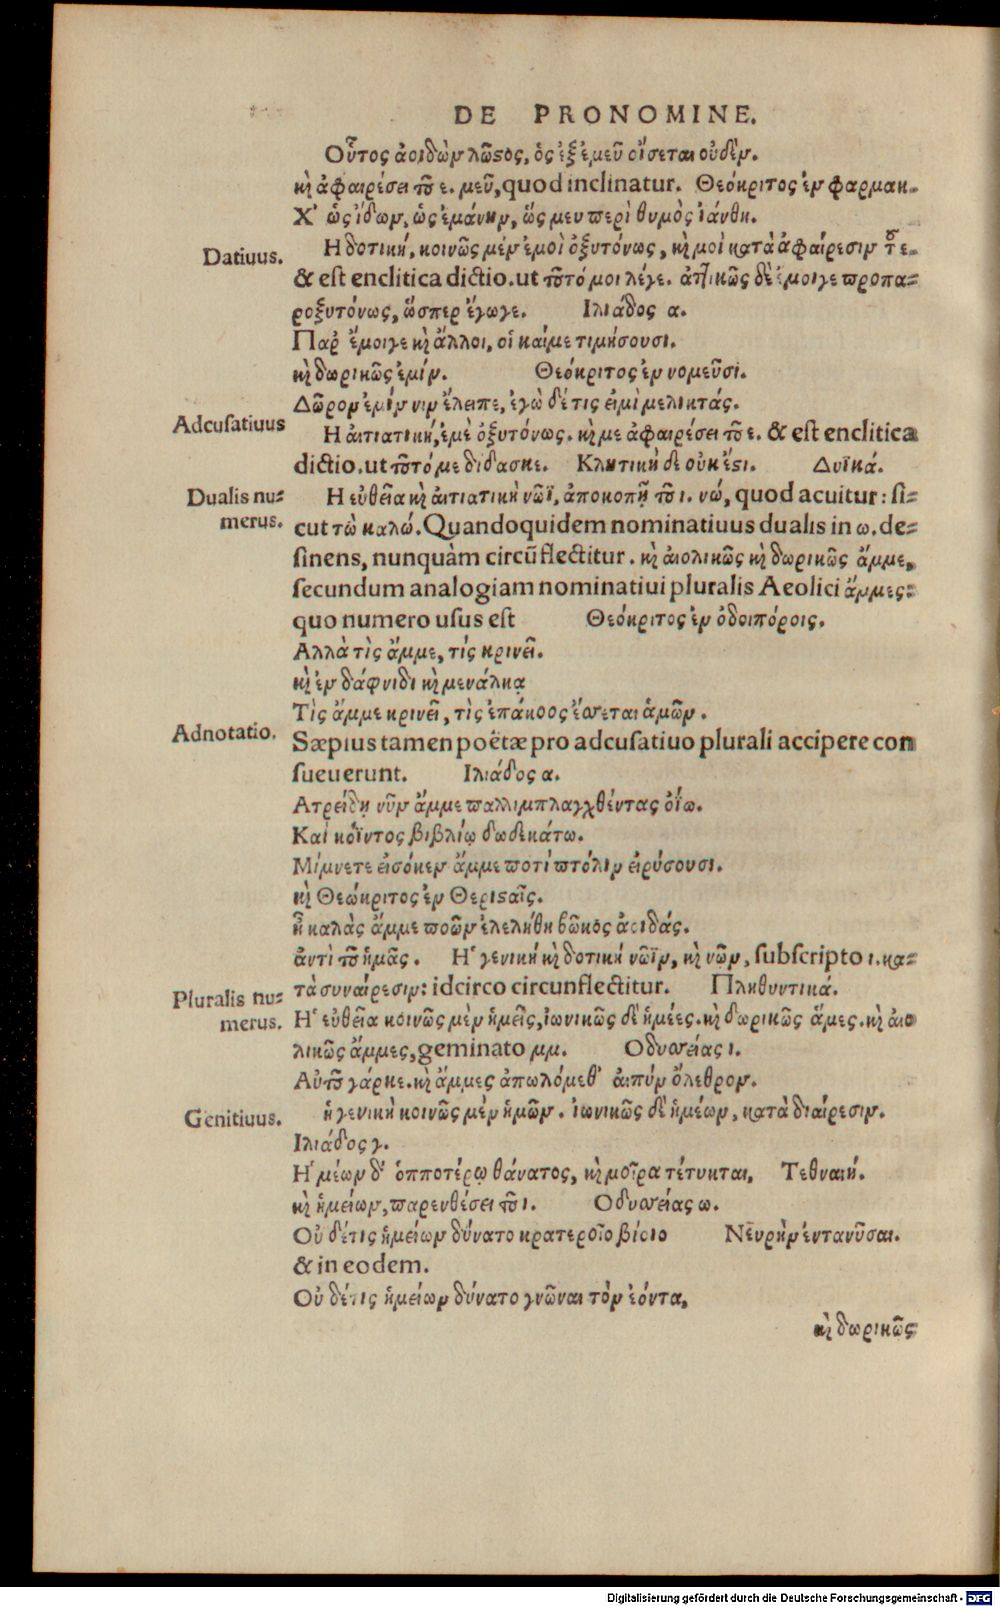 DE PRONOMINE.
Οὗτος ἀοιδῶν λῶϛος, ὃς ἐξ ἐμεῦ οἴσεται οὐδέν.
κὶ ἀφαιρέσει τοῦ ε. μεῦ, quod inclinatur. Θεόκριτος ἐν φαρμακ.
Χ' ὡς ἴδον, ὡς ἐμάνην, ὥς μευ περὶ θυμὸς ἰάνθη.
Datiuus.
Η δοτική, κοινῶς μὲν ἐμοὶ ὀξυτόνως, κὶ μοὶ κατὰ ἀφαίρεσιν τοῦ ε.
& est enclitica dictio. ut τοῦτό μοι λέγε. ἀττικῶς δὲ ἔμοιγε προπα-
ροξυτόνως, ὥσπερ ἔγωγε. Ιλιάδος α.
Παρ' ἔμοιγε κὶ ἄλλοι, οἵ καί με τιμήσουσι.
κὶ δωρικῶς ἐμίν. Θεόκριτος ἐν νομεῦσι.
Δῶρον ἐμίν νιν ἔλειπε, ἐγὼ δέ τις εἰμὶ μελικτάς.
Adcusatiuus
Η αἰτιατική, ἐμὲ ὀξυτόνως. κὶ με ἀφαιρέσει τοῦ ε. & est enclitica
dictio. ut τοῦτό με δίδασκε. Κλητικὴ δε οὐκ ἔϛι. Δυϊκά.
Dualis nu-
merus.
Η εὐθεῖα κὶ αἰτιατικὴ νῶϊ, ἀποκοπῇ τοῦ ι. νώ, quod acuitur: si-
cut τὼ καλώ. Quandoquidem nominatiuus dualis in ω. de-
sinens, nunquàm circũflectitur. κὶ αἰολικῶς κὶ δωρικῶς ἄμμε,
secundum analogiam nominatiui pluralis Aeolici ἄμμες:
quo numero usus est Θεόκριτος ἐν ὁδοιπόροις.
Αλλὰ τὶς ἄμμε, τίς κρινεῖ.
κὶ ἐν δάφνιδι κὶ μενάλκᾳ
Τὶς ἄμμε κρινεῖ, τὶς ἐπάκοος ἔσσεται ἁμῶν.
Adnotatio.
Sæpius tamen poëtæ pro adcusatiuo plurali accipere con
sueuerunt. Ιλιάδος α.
Ατρείδη νῦν ἄμμε παλλιμπλαγχθέντας ὀΐω.
Καὶ κόϊντος βιβλίῳ δωδεκάτω.
Μίμνετε εἰσόκεν ἄμμε ποτὶ πτόλιν εἰρύσουσι.
κὶ Θεώκριτος ἐν Θεριϛαῖς.
ἦ καλὰς ἄμμε ποῶν ἐλελήθη βῶκος ἀοιδάς.
ἀντὶ τοῦ ἡμᾶς. Η' γενική κὶ δοτική νῶϊν, κὶ νῷν, subscripto ι. κα-
τὰ συναίρεσιν: idcirco circunflectitur. Πληθυντικά.
Pluralis nu-
merus.
Η' εὐθεῖα κοινῶς μὲν ἡμεῖς, ἰωνικῶς δὲ ἡμέες. κὶ δωρικῶς ἅμες. κὶ αἰο
λικῶς ἄμμες, geminato μμ. Οδυσσείας ι.
Αὐτοῦ γάρ κε. κὶ ἄμμες ἀπωλόμεθ' αἰπὺν ὄλεθρον.
Genitiuus.
ἡ γενικὴ κοινῶς μὲν ἡμῶν. ἰωνικῶς δὲ ἡμέων, κατὰ διαίρεσιν.
Ιλιάδος γ.
Η' μέων δ' ὁπποτέρῳ θάνατος, κὶ μοῖρα τέτυκται, Τεθναιή.
κὶ ἡμείων, παρενθέσει τοῦ ι. Οδυσσείας ω.
Οὐ δέτις ἡμείων δύνατο κρατεροῖο βίοιο Νευρὴν ἐντανῦσαι.
& in eodem.
Οὐ δέτις ἡμείων δύνατο γνῶναι τὸν ἐόντα,
κὶ δωρικῶς
Digitalisierung gefördert durch die Deutsche Forschungsgemeinschaft - DFG